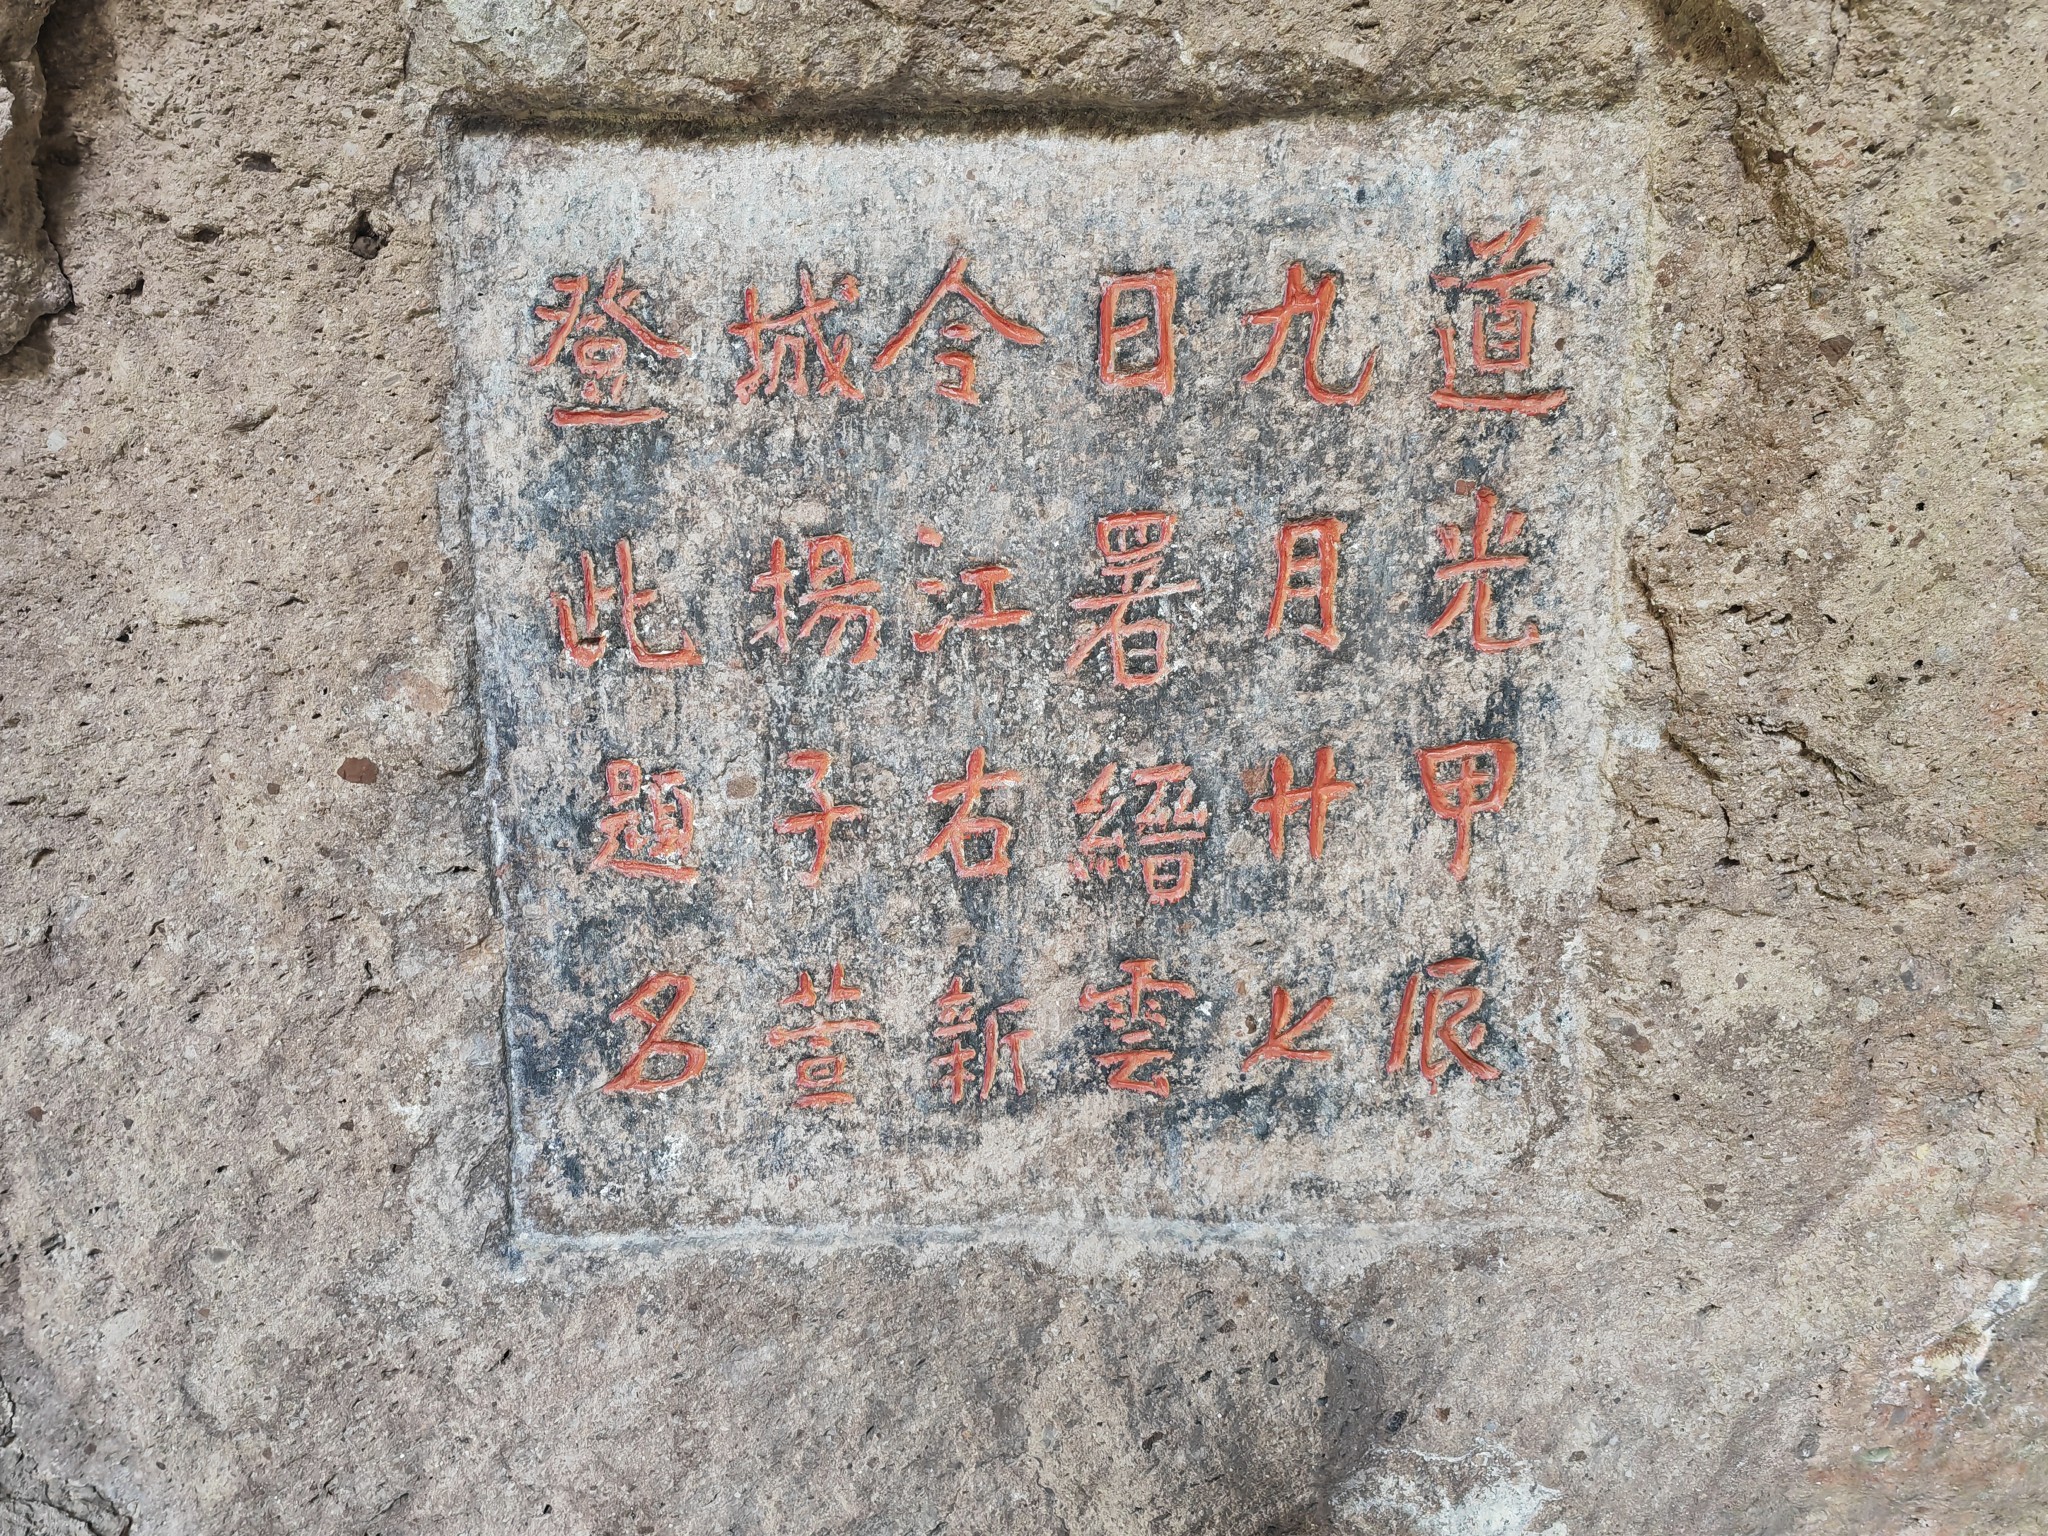 道光甲辰
九月廿七
日署縉雲
令江右新
城揚子萱
登此題名